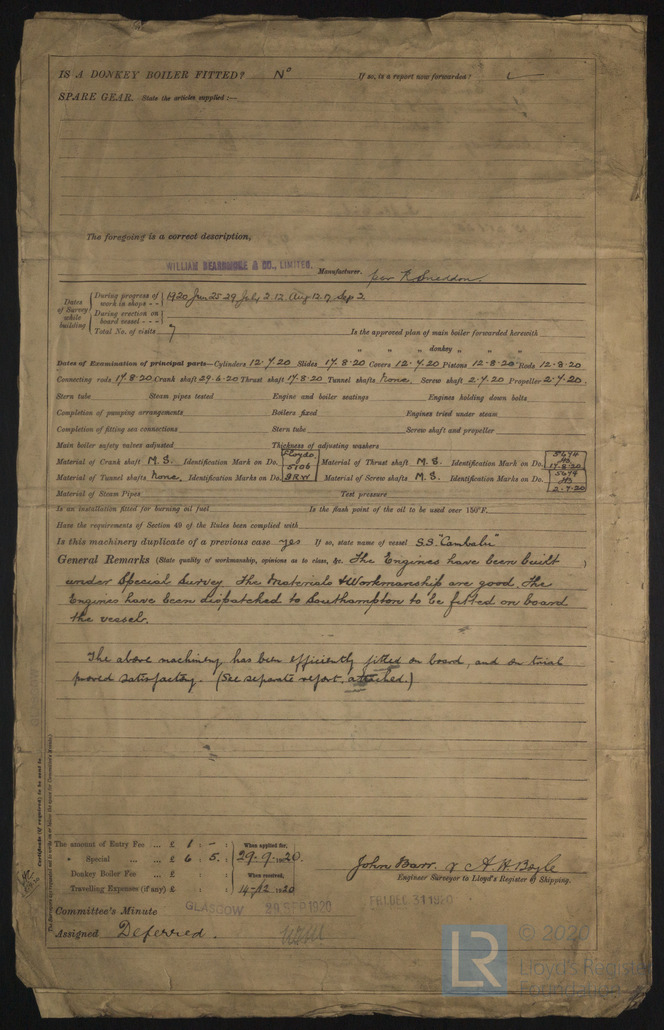 IS A DONKEY BOILER FITTED? No If so, is a report now forwarded?
SPARE GEAR. State the articles supplied :—
The foregoing is a correct description,
WILLIAM BEARDMORE & CO., LIMITED. Manufacturer. per R Sneddon.
Dates of Survey while building
During progress of work in shops - - 1920 Jun 25 29 July 2. 12 Aug 12. 17 Sep 2
During erection on board vessel - - -
Total No. of visits 7 Is the approved plan of main boiler forwarded herewith
" " " donkey " " "
Dates of Examination of principal parts—Cylinders 12.7.20 Slides 17.8.20 Covers 12.7.20 Pistons 12.8.20 Rods 12.8.20
Connecting rods 17.8.20 Crank shaft 29.6.20 Thrust shaft 17.8.20 Tunnel shafts None. Screw shaft 2.7.20 Propeller 2.7.20.
Stern tube Steam pipes tested Engine and boiler seatings Engines holding down bolts
Completion of pumping arrangements Boilers fixed Engines tried under steam
Completion of fitting sea connections Stern tube Screw shaft and propeller
Main boiler safety valves adjusted Thickness of adjusting washers
Material of Crank shaft M.S. Identification Mark on Do. Lloyds. 5106 JRW Material of Thrust shaft M.S. Identification Mark on Do. 5674 HB 17-8-20
Material of Tunnel shafts None. Identification Marks on Do. Material of Screw shafts M.S. Identification Marks on Do. 5674 HB 2-7-20
Material of Steam Pipes Test pressure
Is an installation fitted for burning oil fuel Is the flash point of the oil to be used over 150°F.
Have the requirements of Section 49 of the Rules been complied with
Is this machinery duplicate of a previous case yes If so, state name of vessel S.S. "Cambalu"
General Remarks (State quality of workmanship, opinions as to class, &c. The Engines have been built
under Special Survey The Materials & Workmanship are good The
Engines have been dispatched to Southampton to be fitted on board
the vessels.
The above machinery has been efficiently fitted on board, and on trial
proved satisfactory. (See separate report, attached.)
Certificate (if required) to be sent to
The amount of Entry Fee ... £ 1 : - : When applied for,
" Special ... ... £ 6 : 5. : 29-9-1920.
Donkey Boiler Fee ... £ : : When received,
Travelling Expenses (if any) £ : : 14-12 1920
John Barr. & A. H. Boyle
Engineer Surveyor to Lloyd's Register of Shipping.
Committee's Minute GLASGOW 29 SEP 1920 FRI DEC 31 1920
Assigned Deferred.
LR © 2020
Lloyd's Register
Foundation